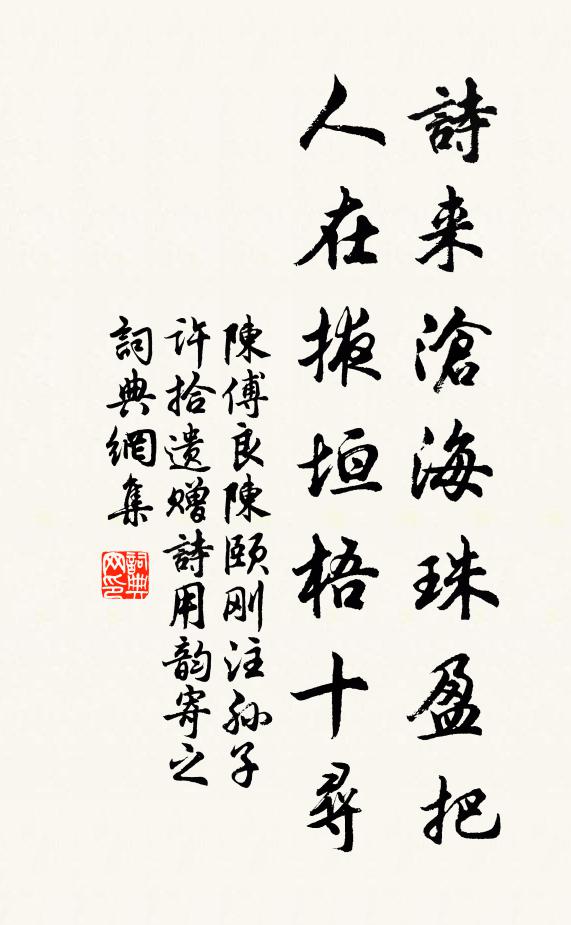 詩来滄海珠盈把
人在掖垣梧十尋
陳傅良陳頤剛注孫子
許拾遗赠詩用韵寄之
詞典網集
詞典
网印